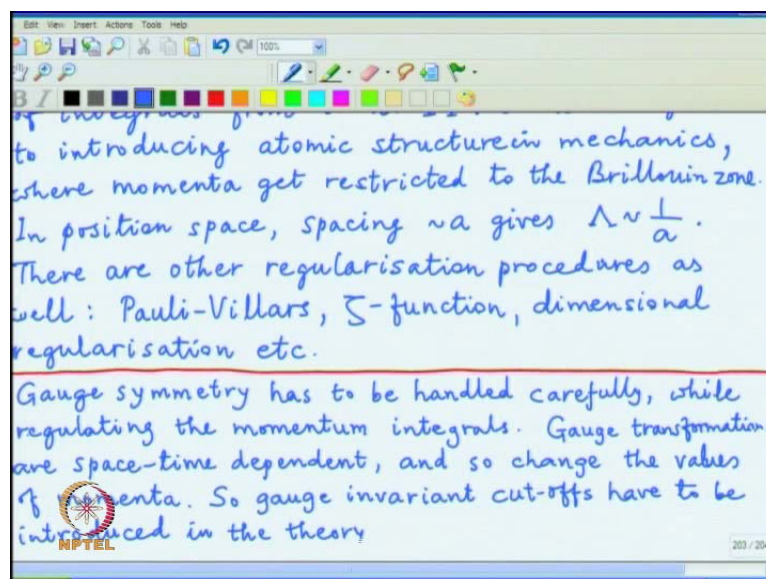 Edit View Insert Actions Tools Help
100%
B I
to introducing atomic structure in mechanics,
where momenta get restricted to the Brillouin zone.
In position space, spacing ~a gives Λ ~ 1/a.
There are other regularisation procedures as
well : Pauli-Villars, ζ-function, dimensional
regularisation etc.
Gauge symmetry has to be handled carefully, while
regulating the momentum integrals. Gauge transformation
are space-time dependent, and so change the values
of momenta. So gauge invariant cut-offs have to be
introduced in the theory
NPTEL
203 / 204